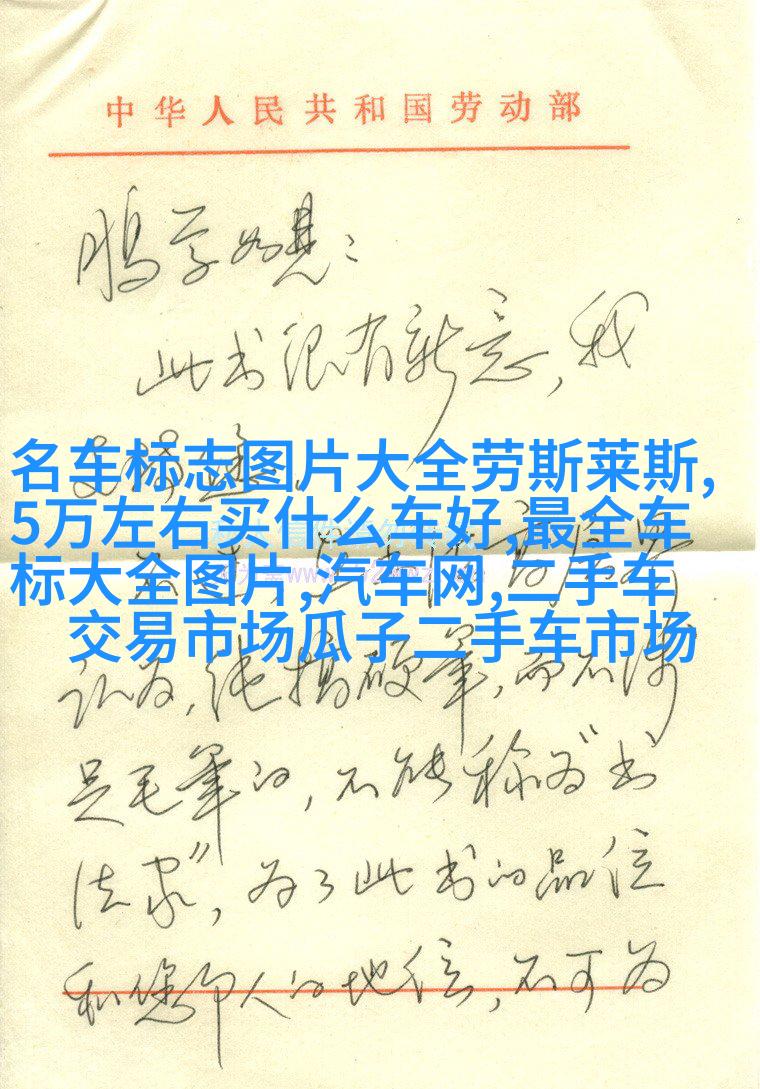 中华人民共和国劳动部
鹏学如晤：
此书很有新意，我
名车标志图片大全劳斯莱斯,
5万左右买什么车好,最全车
标大全图片,汽车网,二手车
交易市场瓜子二手车市场
认为，纯搞硬笔，而不涉
足毛笔的，不能称为“书
法家”，为了此书的品位
和您个人的地位，不可为